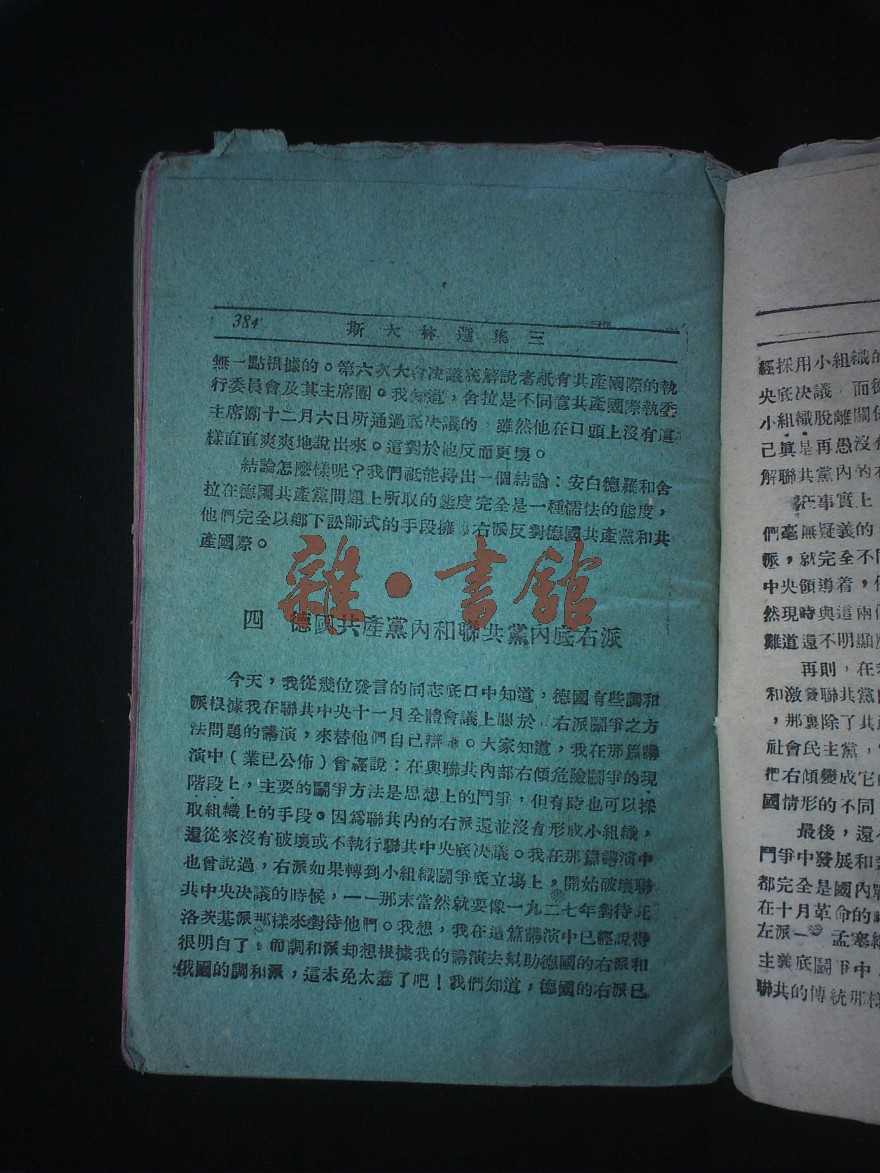 384
斯大林選集三
無一點根據的。第六次大會决議底解說者祇有共產國際的執
行委員會及其主席團。我知道，舍拉是不同意共產國際執委
主席團十二月六日所通過底决議的，雖然他在口頭上沒有這
樣直直爽爽地說出來。這對於他反而更壞。
結論怎麼樣呢？我們祇能得出一個結論：安白德羅和舍
拉在德國共產黨問題上所取的態度完全是一種懦怯的態度，
他們完全以鄉下訟師式的手段擁 右派反對德國共產黨和共
產國際。
雜·書館
四 德國共產黨內和聯共黨內底右派
今天，我從幾位發言的同志底口中知道，德國有些調和
派根據我在聯共中央十一月全體會議上關於 右派鬭爭之方
法問題的講演，來替他們自己辯 。大家知道，我在那篇講
演中（業已公佈）曾經說：在與聯共內部右傾危險鬭爭的現
階段上，主要的鬭爭方法是思想上的鬥爭，但有時也可以採
取組織上的手段。因爲聯共內的右派還並沒有形成小組織，
還從來沒有破壞或不執行聯共中央底决議。我在那篇講演中
也曾說過，右派如果轉到小組織鬭爭底立場上，開始破壞聯
共中央决議的時候，——那末當然就要像一九二七年對待托
洛茨基派那樣來對待他們。我想，我在這篇講演中已經說得
很明白了。而調和派却想根據我的講演去幫助德國的右派和
俄國的調和派，這未免太蠢了吧！我們知道，德國的右派已
經採用小組織的
央底决議 而德
小組織脫離關係
己眞是再愚沒有
解聯共黨內的右
在事實上
們毫無疑義的
派，就完全不同
中央領導着，
然現時與這兩個
難道還不明顯
再則，在
和激發聯共黨
，那裏除了共產
社會民主黨，
把右傾變成它
國情形的不同
最後，還
鬥爭中發展和
都完全是國內
在十月革命的
左派— 孟塞維
主義底鬭爭中
聯共的傳統那樣